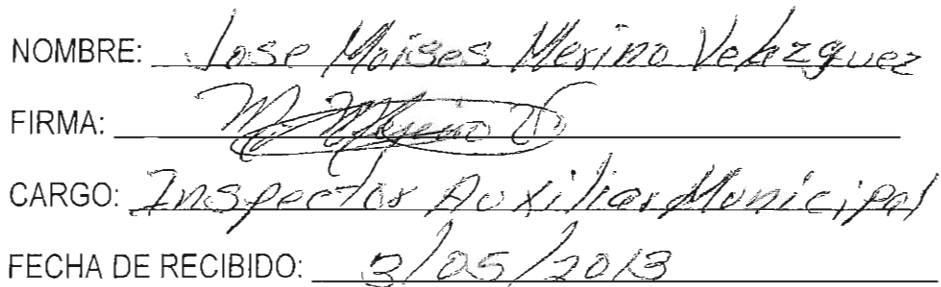 NOMBRE: Jose Moises Merino Velazquez
FIRMA: M. Merino V
CARGO: Inspector Auxiliar Municipal
FECHA DE RECIBIDO: 3/05/2013